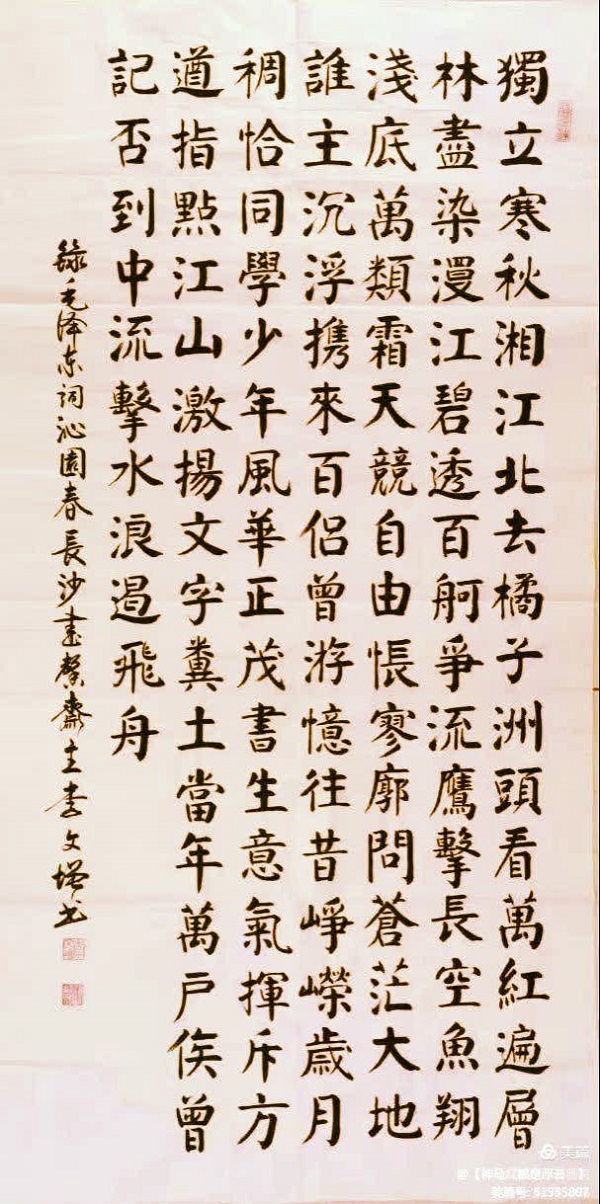 獨立寒秋湘江北去橘子洲頭看萬紅遍層
林盡染漫江碧透百舸爭流鷹擊長空魚翔
淺底萬類霜天競自由悵寥廓問蒼茫大地
誰主沉浮携來百侶曾游憶往昔崢嶸歲月
稠恰同學少年風華正茂書生意氣揮斥方
遒指點江山激揚文字糞土當年萬户侯曾
記否到中流擊水浪遏飛舟
錄毛泽东词沁園春長沙馨齋主李文书
美篇
美篇号: 51955807